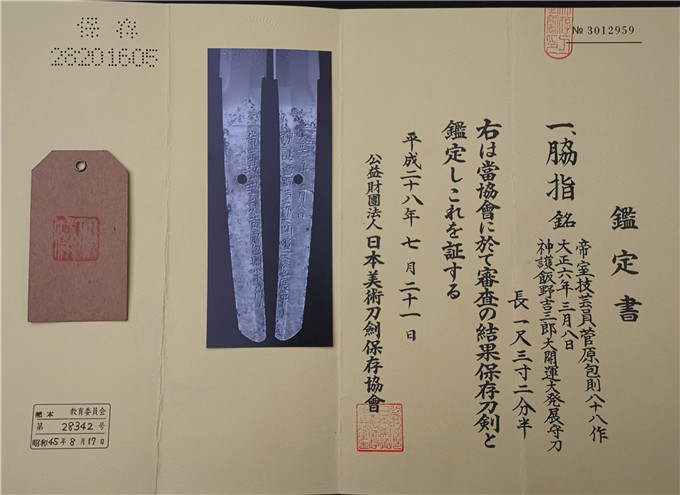 № 3012959
鑑定書
一、脇指 銘
帝室技芸員菅原包則八十八作
大正六年三月八日
神護飯野吉三郎大開運大発展守刀
長一尺三寸二分半
右は當協會に於て審査の結果保存刀剣と
鑑定しこれを証する
平成二十八年七月二十一日
公益財團法人 日本美術刀劍保存協會
保存
28201605
教育委員会
第 28342 号
昭和45年8月17日